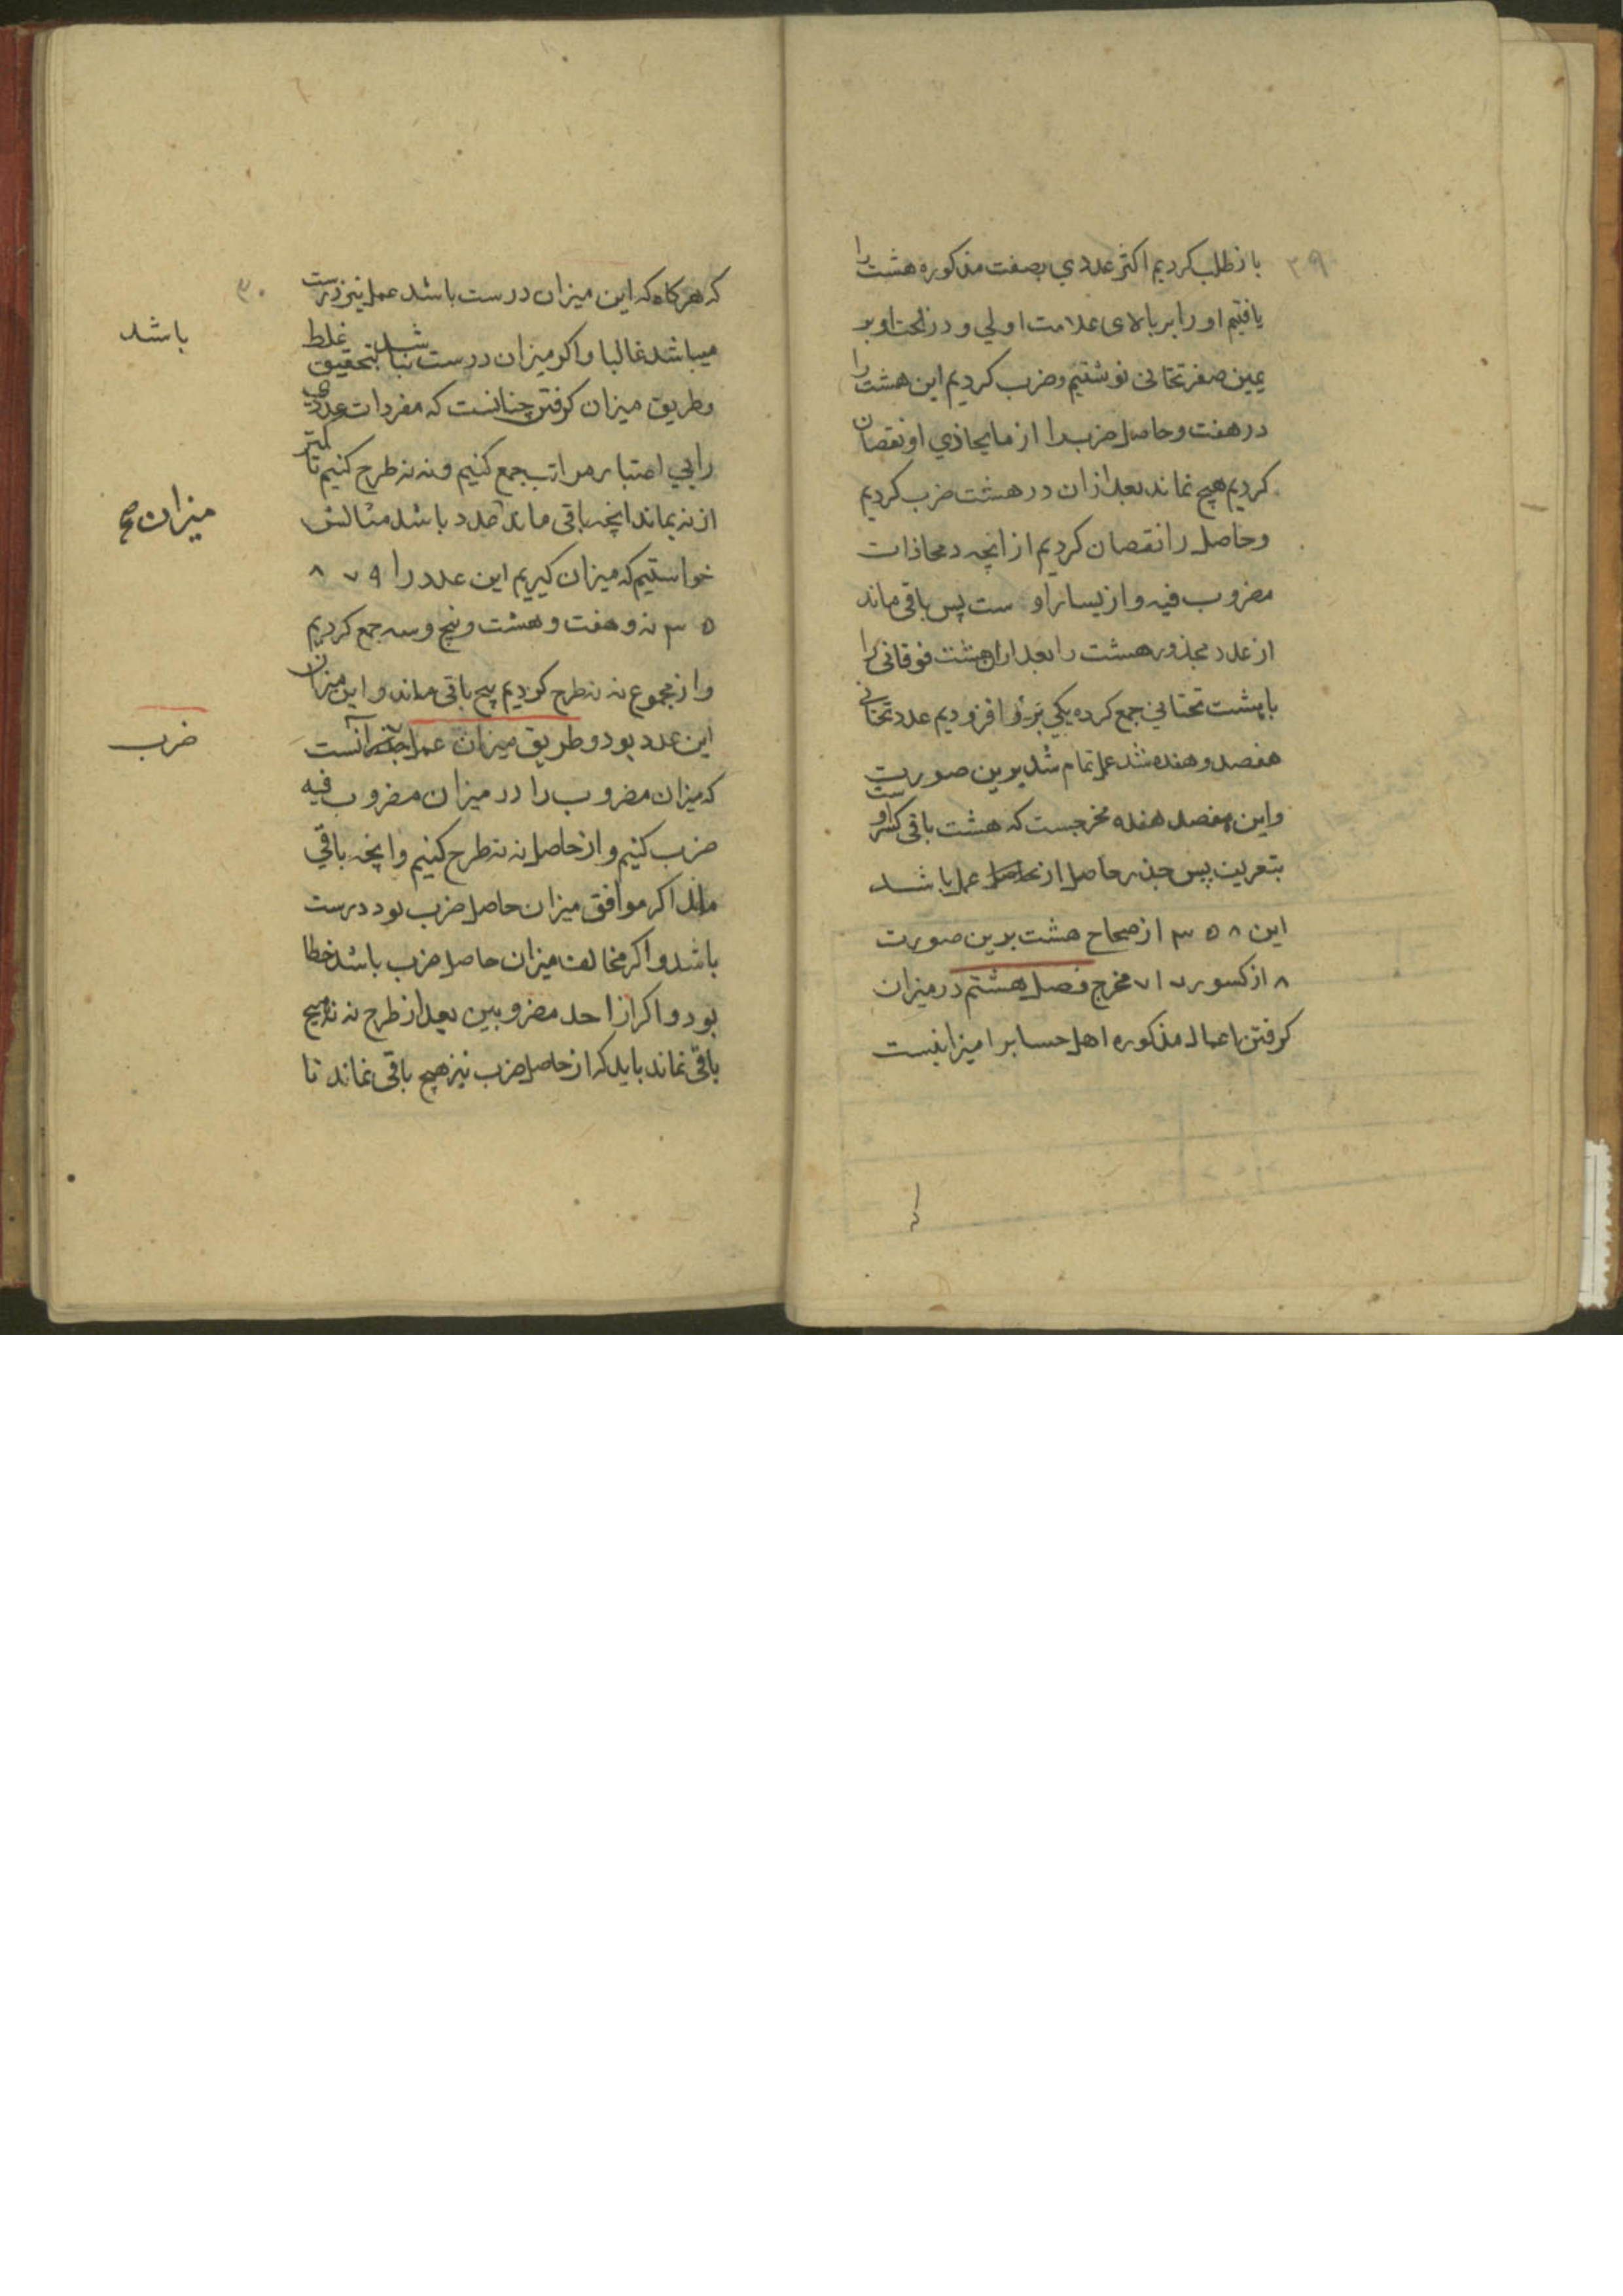 ۲۹
باز طلب کردیم اکثر عددي بصفت مذکوره هشت را
یافتیم او را بر بالای علامت اولي و در تحت او بر
یمین صفر تحتانی نوشتیم و ضرب کردیم این هشت را
در هفت و حاصل ضرب را از مایحاذي او نقصان
کردیم هیچ نماند بعد ازان در هشت ضرب کردیم
و حاصل را نقصان کردیم از انچه در محاذات
مضروب فیه و از یسار او ست پس باقی ماند
از عدد مجذور هشت را بعد ازان هشت فوقانی را
با هشت تحتاني جمع کرده یکي برو افزودیم عدد تحتانی
هفصد و هفده شد عمل تمام شد برین صورت
و این هفصد هفده مخرجست که هشت باقی کسر اوست
بتقریب پس جذر حاصل از عمل باشد
این ۳۵۸ از صحاح هشت برین صورت
۸ از کسور ۷۱۷ مخرج فصل هشتم در میزان
کرفتن اعمال مذکوره اهل حسابرا میزانیست
۳۰
که هرکاه که این میزان درست باشد عمل نیز درست
میباشد غالبا و اکر میزان درست نباشد بتحقیق غلط
باشد
و طریق میزان کرفتن چنانست که مفردات عددی
را بي اعتبار مراتب جمع کنیم و نه نه طرح کنیم تا کمتر
از نه بماند انچه باقی ماند عدد باشد مثالش
میزان
خواستیم که میزان کیریم این عدد را ۹ ۷ ۸
۵ ۳ نه و هفت و هشت و پنج و سه جمع کردیم
و از مجموع نه نه طرح کردیم پنج باقی ماند و این میزان
این عدد بود و طریق میزان عمل آنست
ضرب
که میزان مضروب را در میزان مضروب فیه
ضرب کنیم و از حاصل نه نه طرح کنیم و انچه باقي
ماند اکر موافق میزان حاصل ضرب بود درست
باشد و اکر مخالف میزان حاصل ضرب باشد خطا
بود و اکر از احد مضروبین بعد از طرح نه نه هیچ
باقي نماند باید که از حاصل ضرب نیز هیچ باقی نماند تا